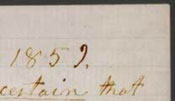 1859.
certain that